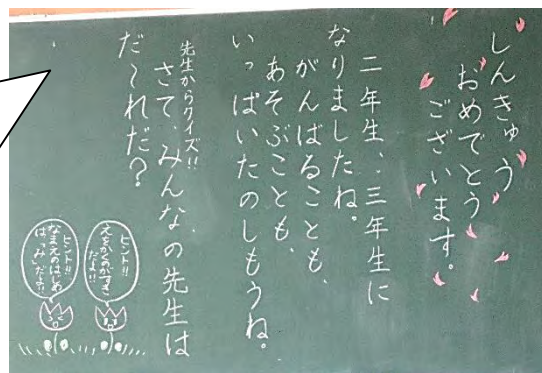 しんきゅう
おめでとう
ございます。
二年生、三年生に
なりましたね。
がんばることも、
あそぶことも、
いっぱいたのしもうね。
先生からクイズ!!
さて、みんなの先生は
だ～れだ?
ヒント!!
えをかくのがすき
だよ!!
ヒント!!
なまえのはじめ
は「み」だよ!!